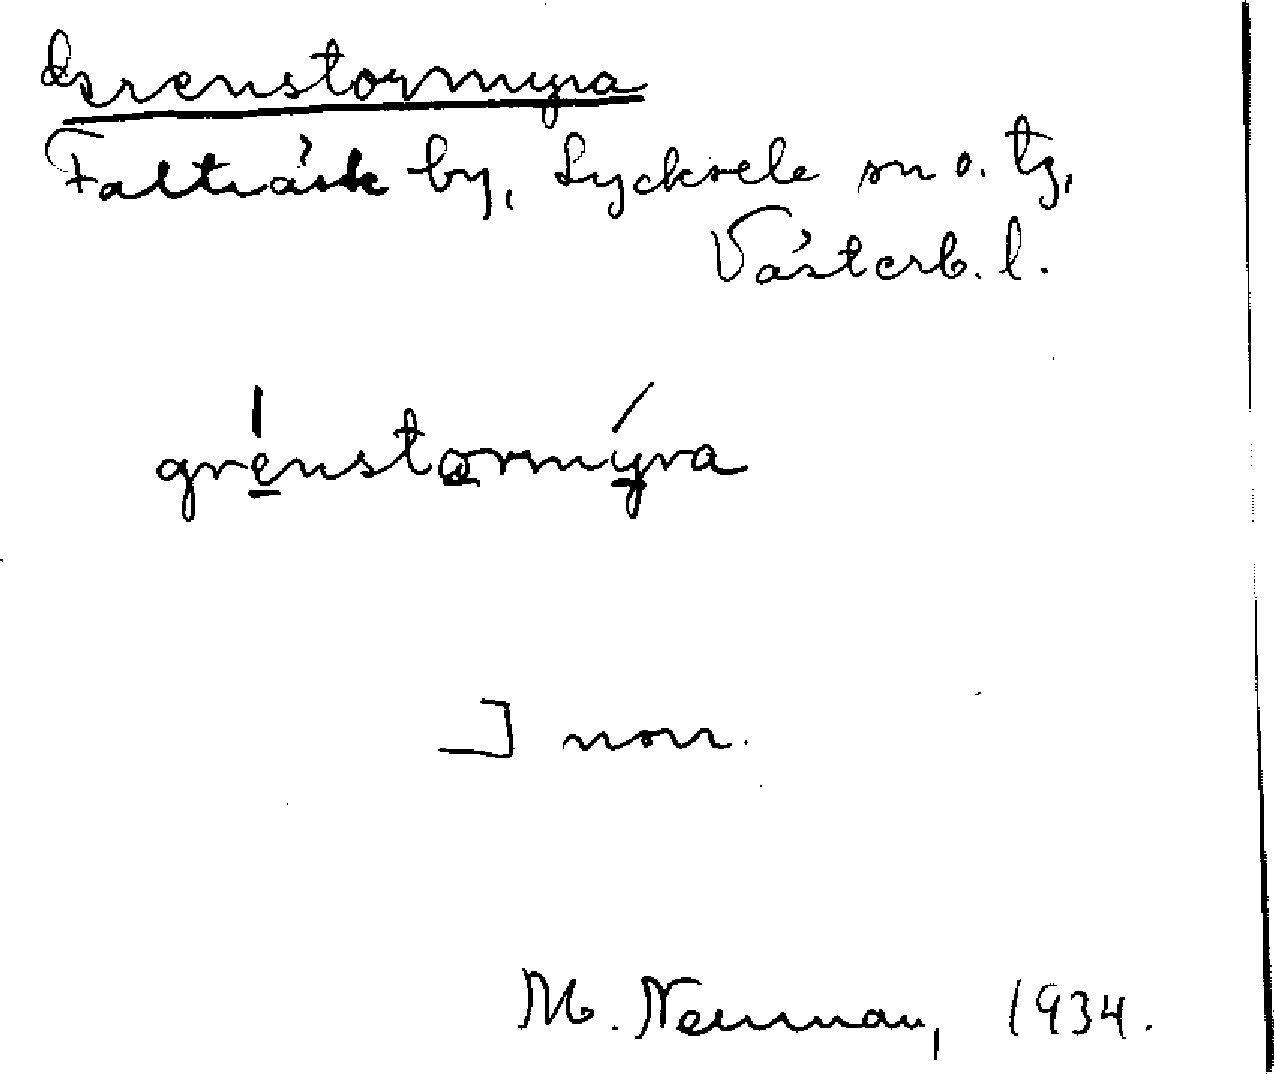 Grenstormyra
Falträsk by, Lycksele sn o. tg,
Västerb. l.
grenstormyra
norr.
M. Neuman, 1934.